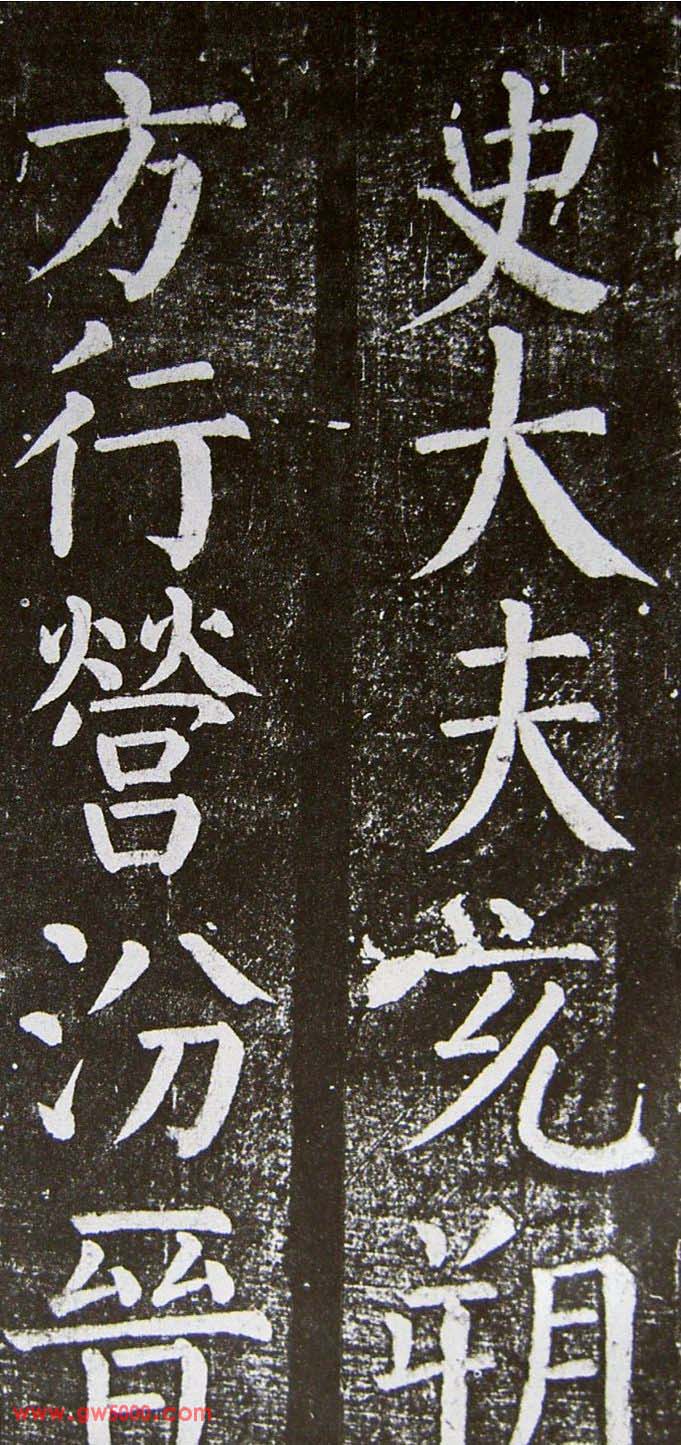 史大夫充朔
方行營汾晉
www.gw5000.com